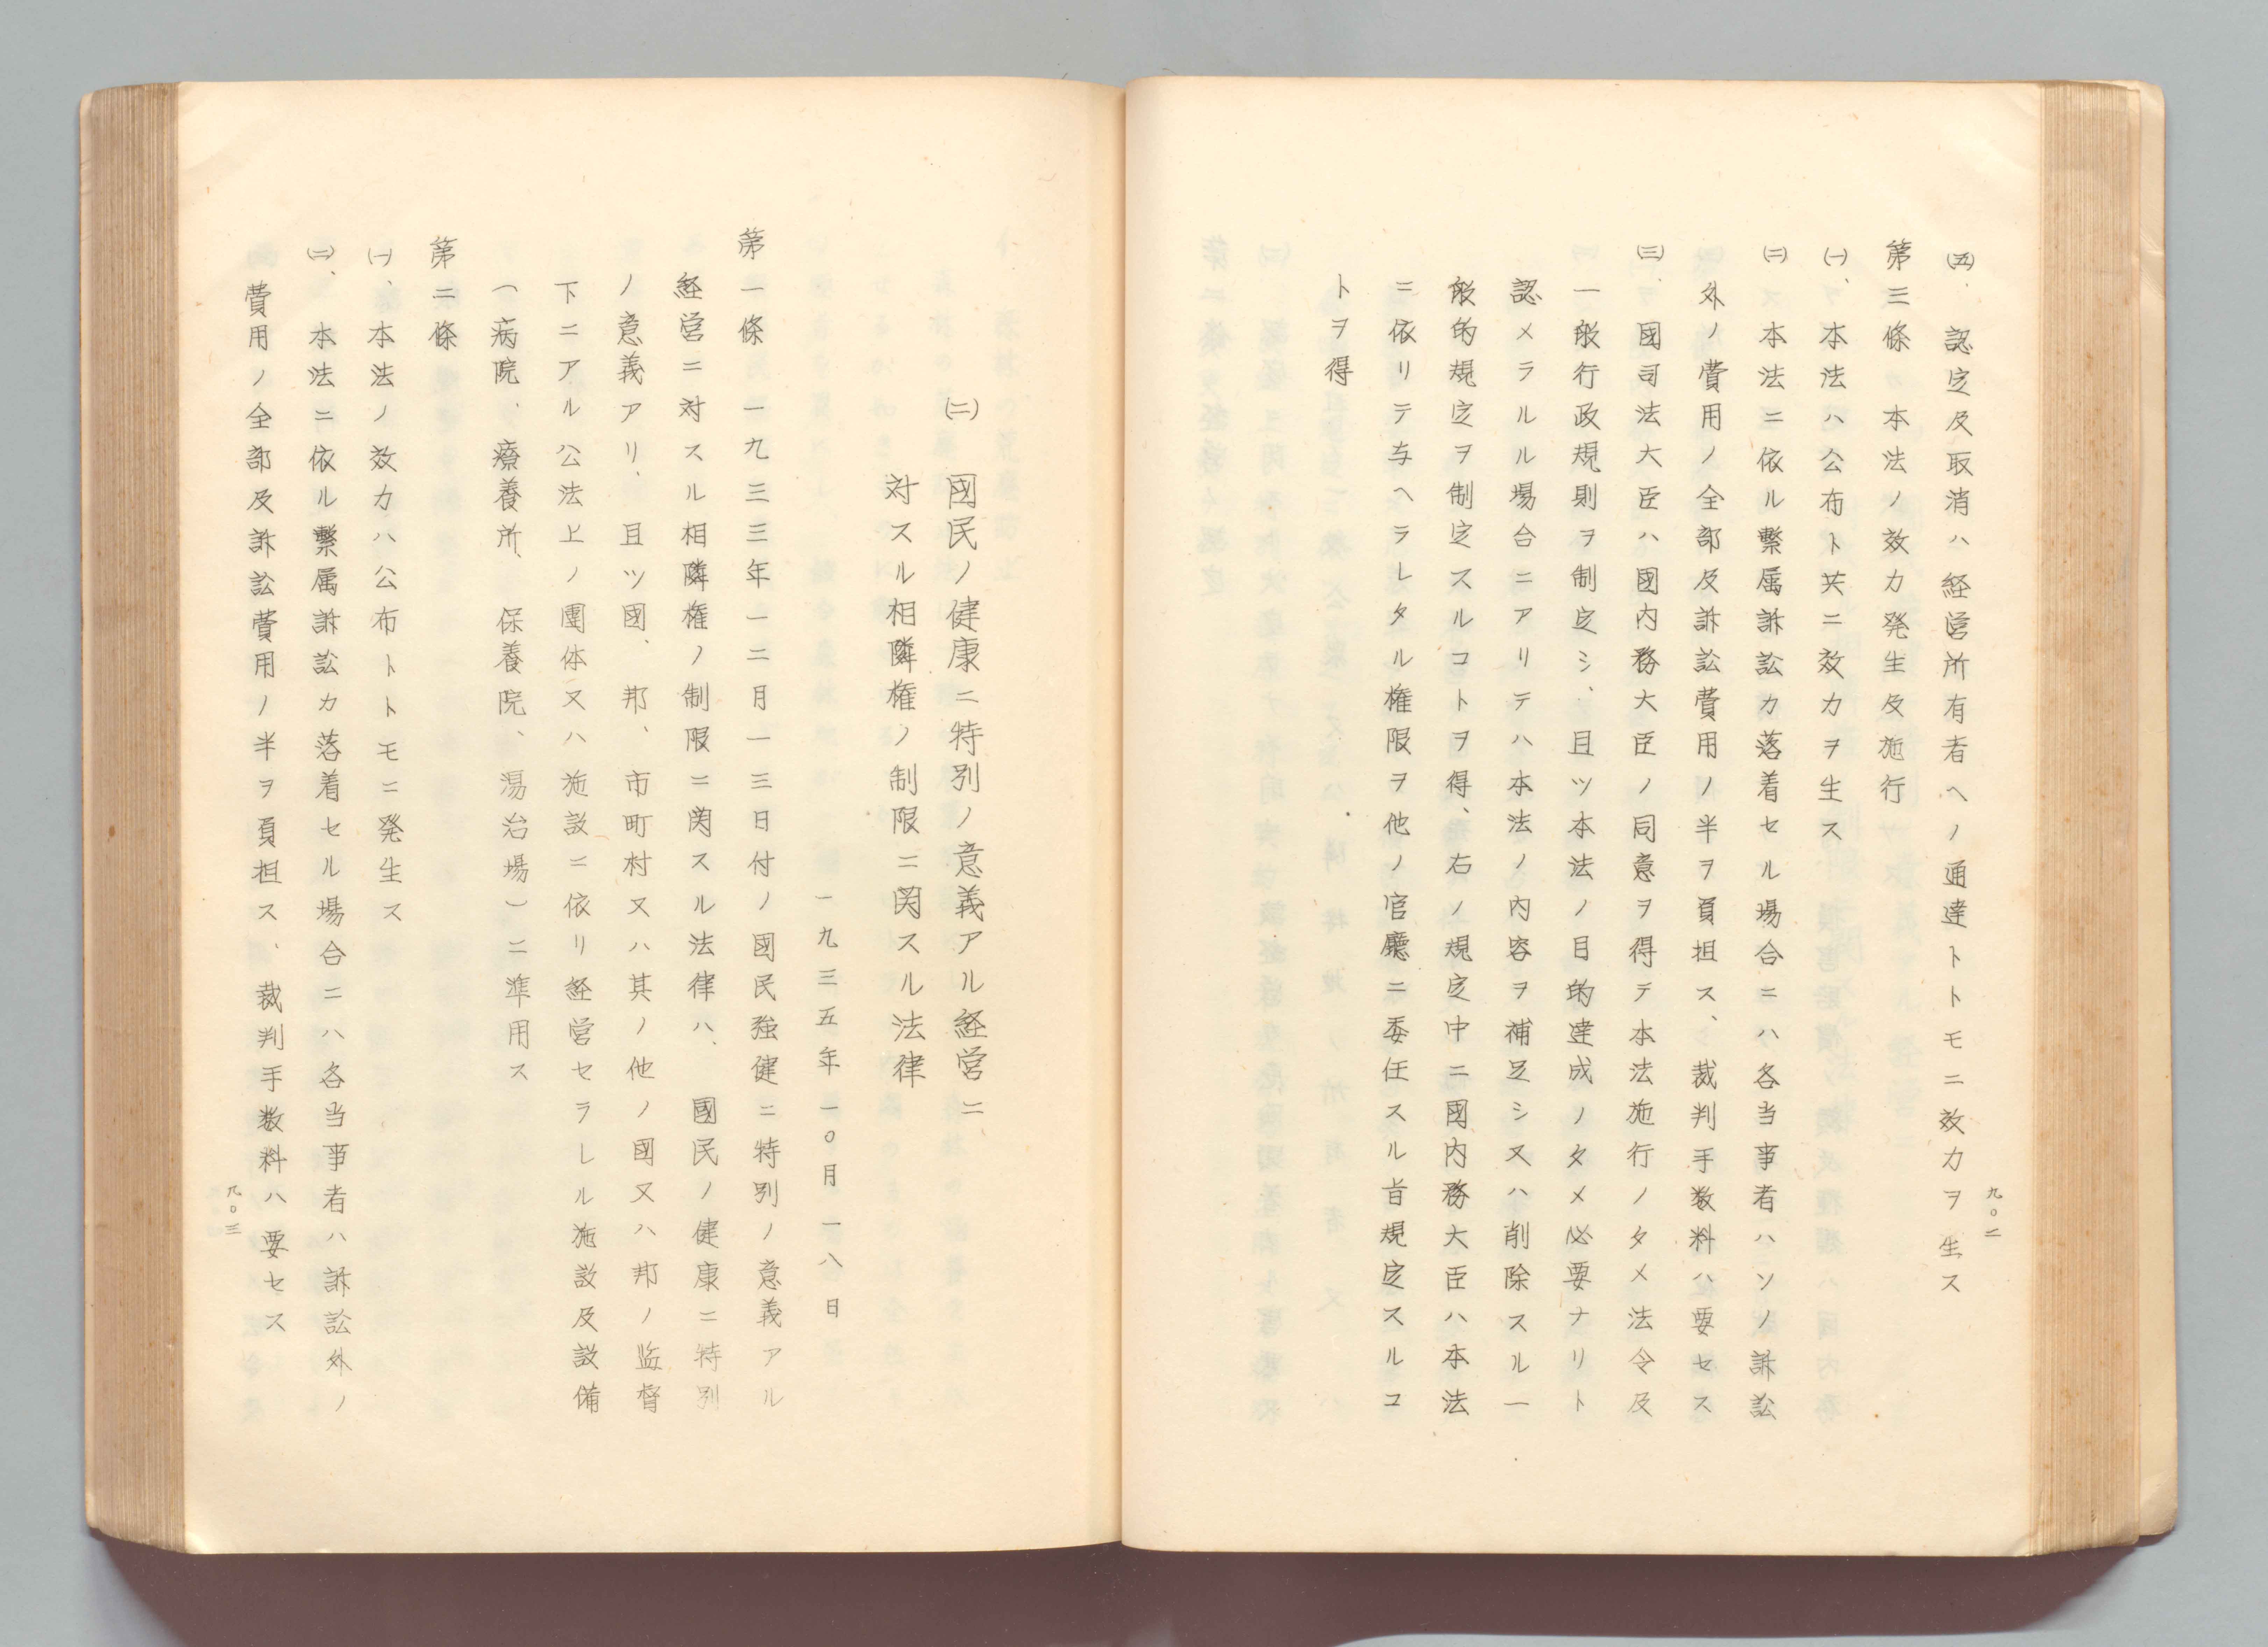 九〇二
㈤、認定及取消ハ経営所有者ヘノ通達トトモニ效力ヲ生ス
第三條　本法ノ效力発生及施行
㈠、本法ハ公布ト共ニ效力ヲ生ス
㈡　本法ニ依ル繫属訴訟カ落着セル場合ニハ各当事者ハソノ訴訟
外ノ費用ノ全部及訴訟費用ノ半ヲ負担ス、裁判手数料ハ要セス
㈢、國司法大臣ハ國内務大臣ノ同意ヲ得テ本法施行ノタメ法令及
一般行政規則ヲ制定シ、且ツ本法ノ目的達成ノタメ必要ナリト
認メラルル場合ニアリテハ本法ノ内容ヲ補足シ又ハ削除スル一
般的規定ヲ制定スルコトヲ得、右ノ規定中ニ國内務大臣ハ本法
ニ依リテ与ヘラレタル権限ヲ他ノ官廳ニ委任スル旨規定スルコ
トヲ得
㈡　國民ノ健康ニ特別ノ意義アル経営ニ、
対スル相隣権ノ制限ニ関スル法律
一九三五年一〇月一八日
第一條　一九三三年一二月一三日付ノ國民強健ニ特別ノ意義アル
経営ニ対スル相隣権ノ制限ニ関スル法律ハ、國民ノ健康ニ特別
ノ意義アリ、且ツ國、邦、市町村又ハ其ノ他ノ國又ハ邦ノ監督
下ニアル公法上ノ團体又ハ施設ニ依リ経営セラレル施設及設備
（病院、療養所、保養院、湯治場）ニ準用ス
第二條
㈠、本法ノ效力ハ公布トトモニ発生ス
㈡、本法ニ依ル繫属訴訟カ落着セル場合ニハ各当事者ハ訴訟外ノ
費用ノ全部及訴訟費用ノ半ヲ負担ス、裁判手数料ハ要セス
九〇三